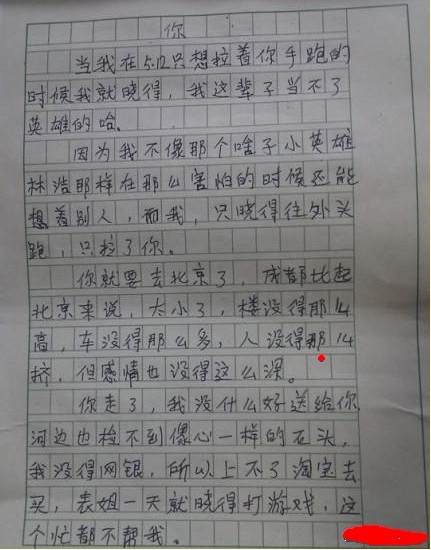 你
当我在5.12只想拉着你手跑的
时候我就晓得，我这辈子当不了
英雄的哈。
因为我不像那个啥子小英雄
林浩那样在那么害怕的时候还能
想着别人，而我，只晓得往外头
跑，只拉了你。
你就要去北京了，成都比起
北京来说，太小了，楼没得那么
高，车没得那么多，人没得那么
挤，但感情也没得这么深。
你走了，我没什么好送给你，
河边也捡不到像心一样的石头，
我没得网银，所以上不了淘宝去
买，表姐一天就晓得打游戏，这
个忙都不帮我。